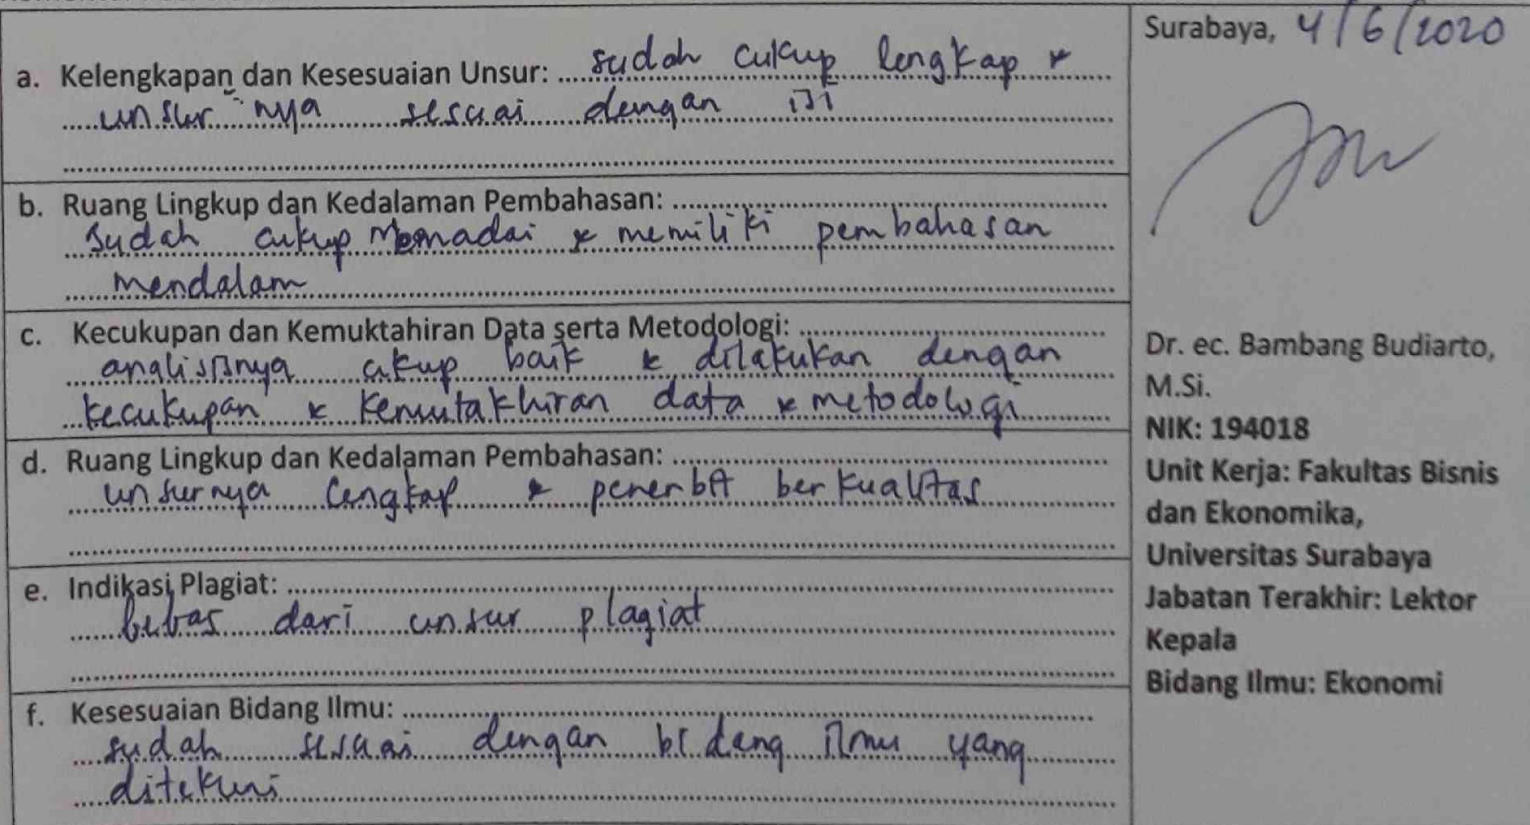 a. Kelengkapan dan Kesesuaian Unsur: sudah cukup lengkap &
unsurnya sesuai dengan isi
b. Ruang Lingkup dan Kedalaman Pembahasan:
sudah cukup memadai & memiliki pembahasan
mendalam
c. Kecukupan dan Kemuktahiran Data serta Metodologi:
analisisnya cukup baik & dilakukan dengan
kecukupan & kemutakhiran data & metodologi
d. Ruang Lingkup dan Kedalaman Pembahasan:
unsurnya lengkap & penerbit berkualitas
e. Indikasi Plagiat:
bebas dari unsur plagiat
f. Kesesuaian Bidang Ilmu:
sudah sesuai dengan bidang ilmu yang
ditekuni
Surabaya, 4/6/2020
Dr. ec. Bambang Budiarto,
M.Si.
NIK: 194018
Unit Kerja: Fakultas Bisnis
dan Ekonomika,
Universitas Surabaya
Jabatan Terakhir: Lektor
Kepala
Bidang Ilmu: Ekonomi